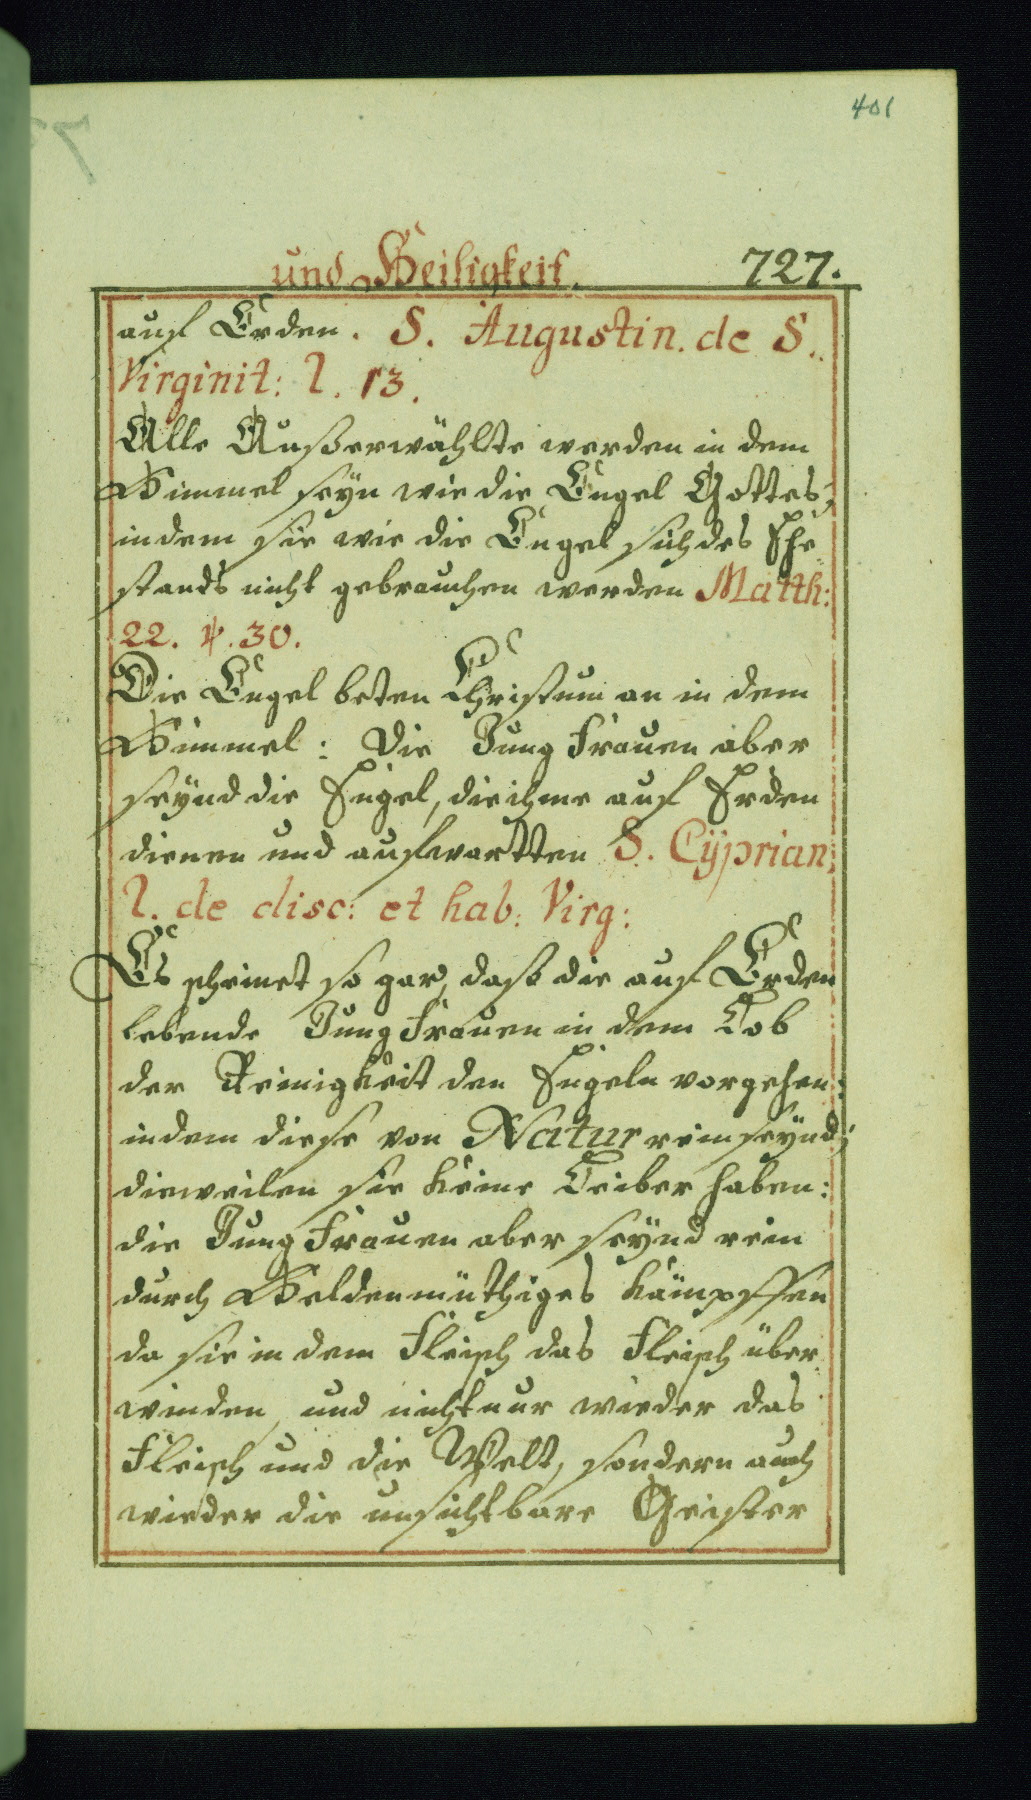 401
und Heiligkeit. 727.
auf Erden. S. Augustin. de S.
Virginit: l. 13.
Alle Außerwählte werden in dem
Himmel seyn wie die Engel Gottes,
indem sie wie die Engel sich des Ehe
stands nicht gebrauchen werden Matth:
22. ℣. 30.
Die Engel beten Christum an in dem
Himmel: Die Jung Frauen aber
seynd die Engel, die ihme auf Erden
dienen und aufwartten S. Cÿprian:
l. de disc: et hab: Virg:
Es scheinet so gar, daß die auf Erden
lebende Jung Frauen in dem Lob
der Reinigkeit den Engeln vorgehen:
indem diese von Natur rein seynd;
dieweilen sie keine Leiber haben:
die Jung Frauen aber seynd rein
durch Heldenmüthiges kämpffen
da sie in dem Fleisch das Fleisch über
winden, und nicht nur wieder das
Fleisch und die Welt, sondern auch
wieder die unsichtbare Geister